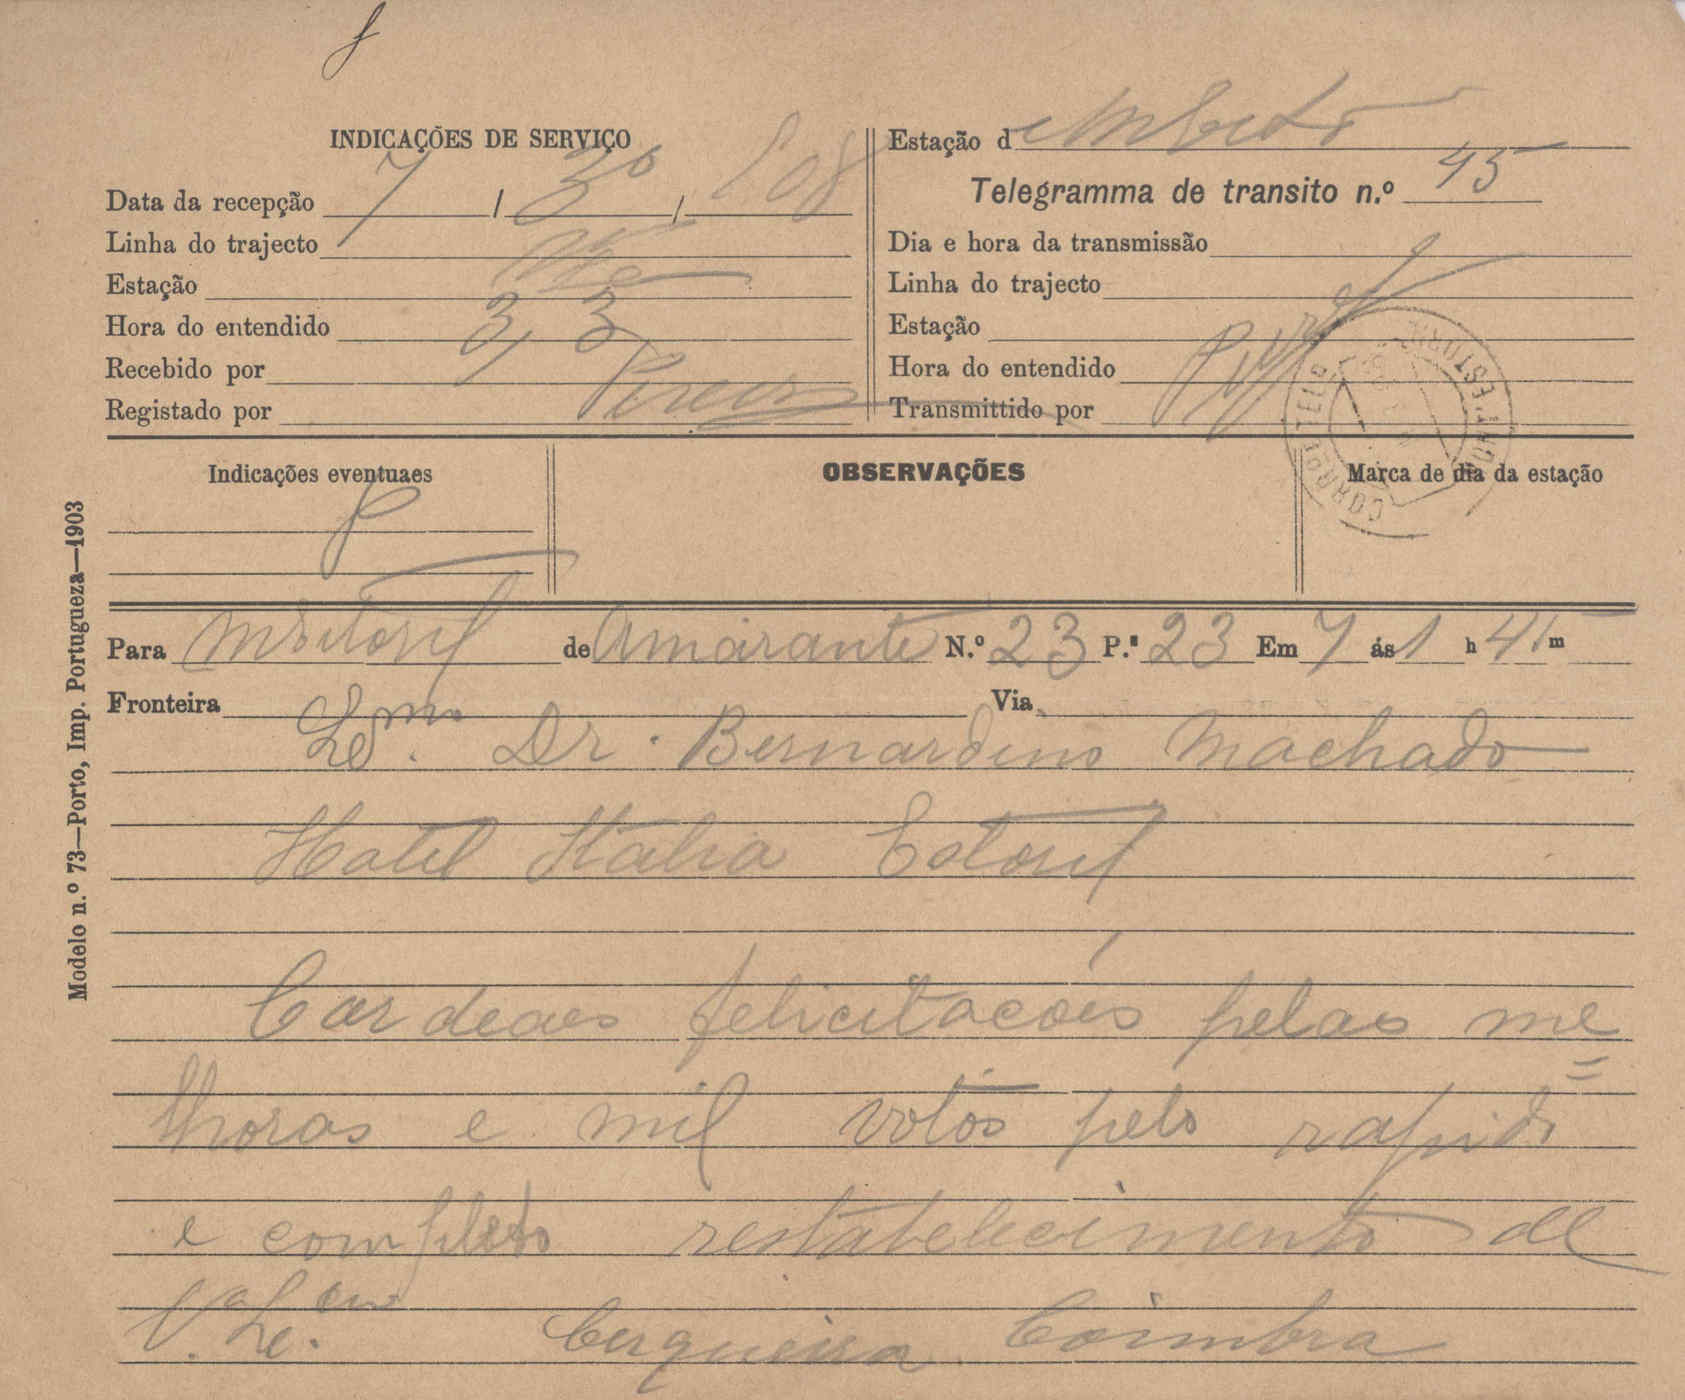 INDICAÇÕES DE SERVIÇO
Data da recepção 7 / 3º / 908
Linha do trajecto
Estação
Hora do entendido 3, 3
Recebido por
Registado por Pereira
Estação d
Telegramma de transito n.º 45
Dia e hora da transmissão
Linha do trajecto
Estação
Hora do entendido
Transmittido por
Indicações eventuaes
OBSERVAÇÕES
Marca de dia da estação
CORREIO TELEG
Modelo n.º 73—Porto, Imp. Portugueza—1903
Para MEstoril de Amarante N.º 23 P.ª 23 Em 7 ás 1 h 45 m
Fronteira Via
Exmo. Dr. Bernardino Machado
Hotel Italia Estoril
Cordeaes felicitacões pelas me
lhoras e mil votos pelo rapido
e completo restabelecimento de
V. Exa.
Cerqueira Coimbra